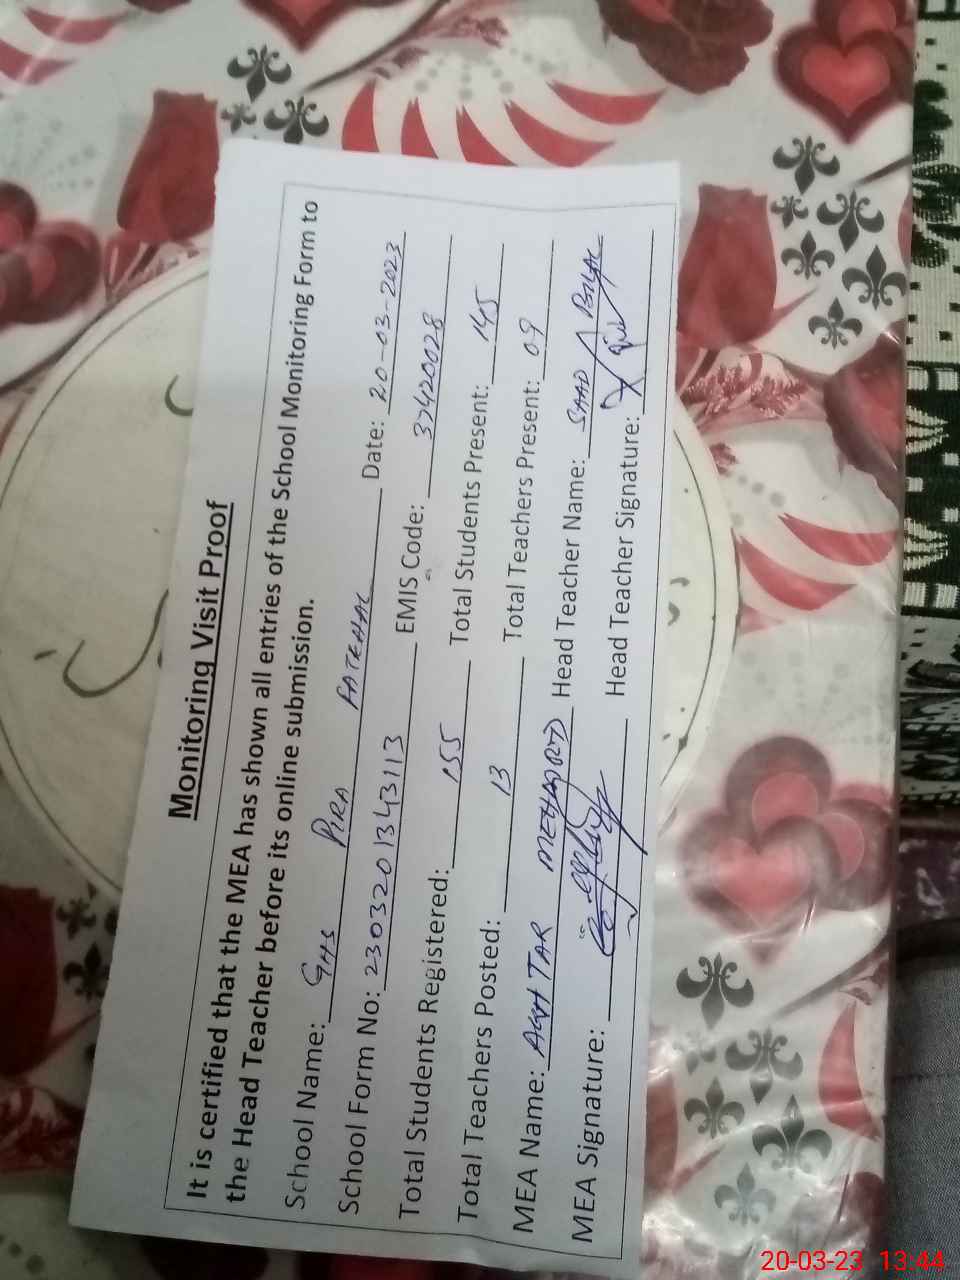 Monitoring Visit Proof
It is certified that the MEA has shown all entries of the School Monitoring Form to
the Head Teacher before its online submission.
School Name: GHS PIRA FATEHAL Date: 20-03-2023
School Form No: 2303201343113 EMIS Code: 37420028
Total Students Registered: 155 Total Students Present: 145
Total Teachers Posted: 13 Total Teachers Present: 09
MEA Name: AKHTAR MEHMOOD Head Teacher Name: SAAD BILAL
MEA Signature: Head Teacher Signature:
20-03-23 13:44